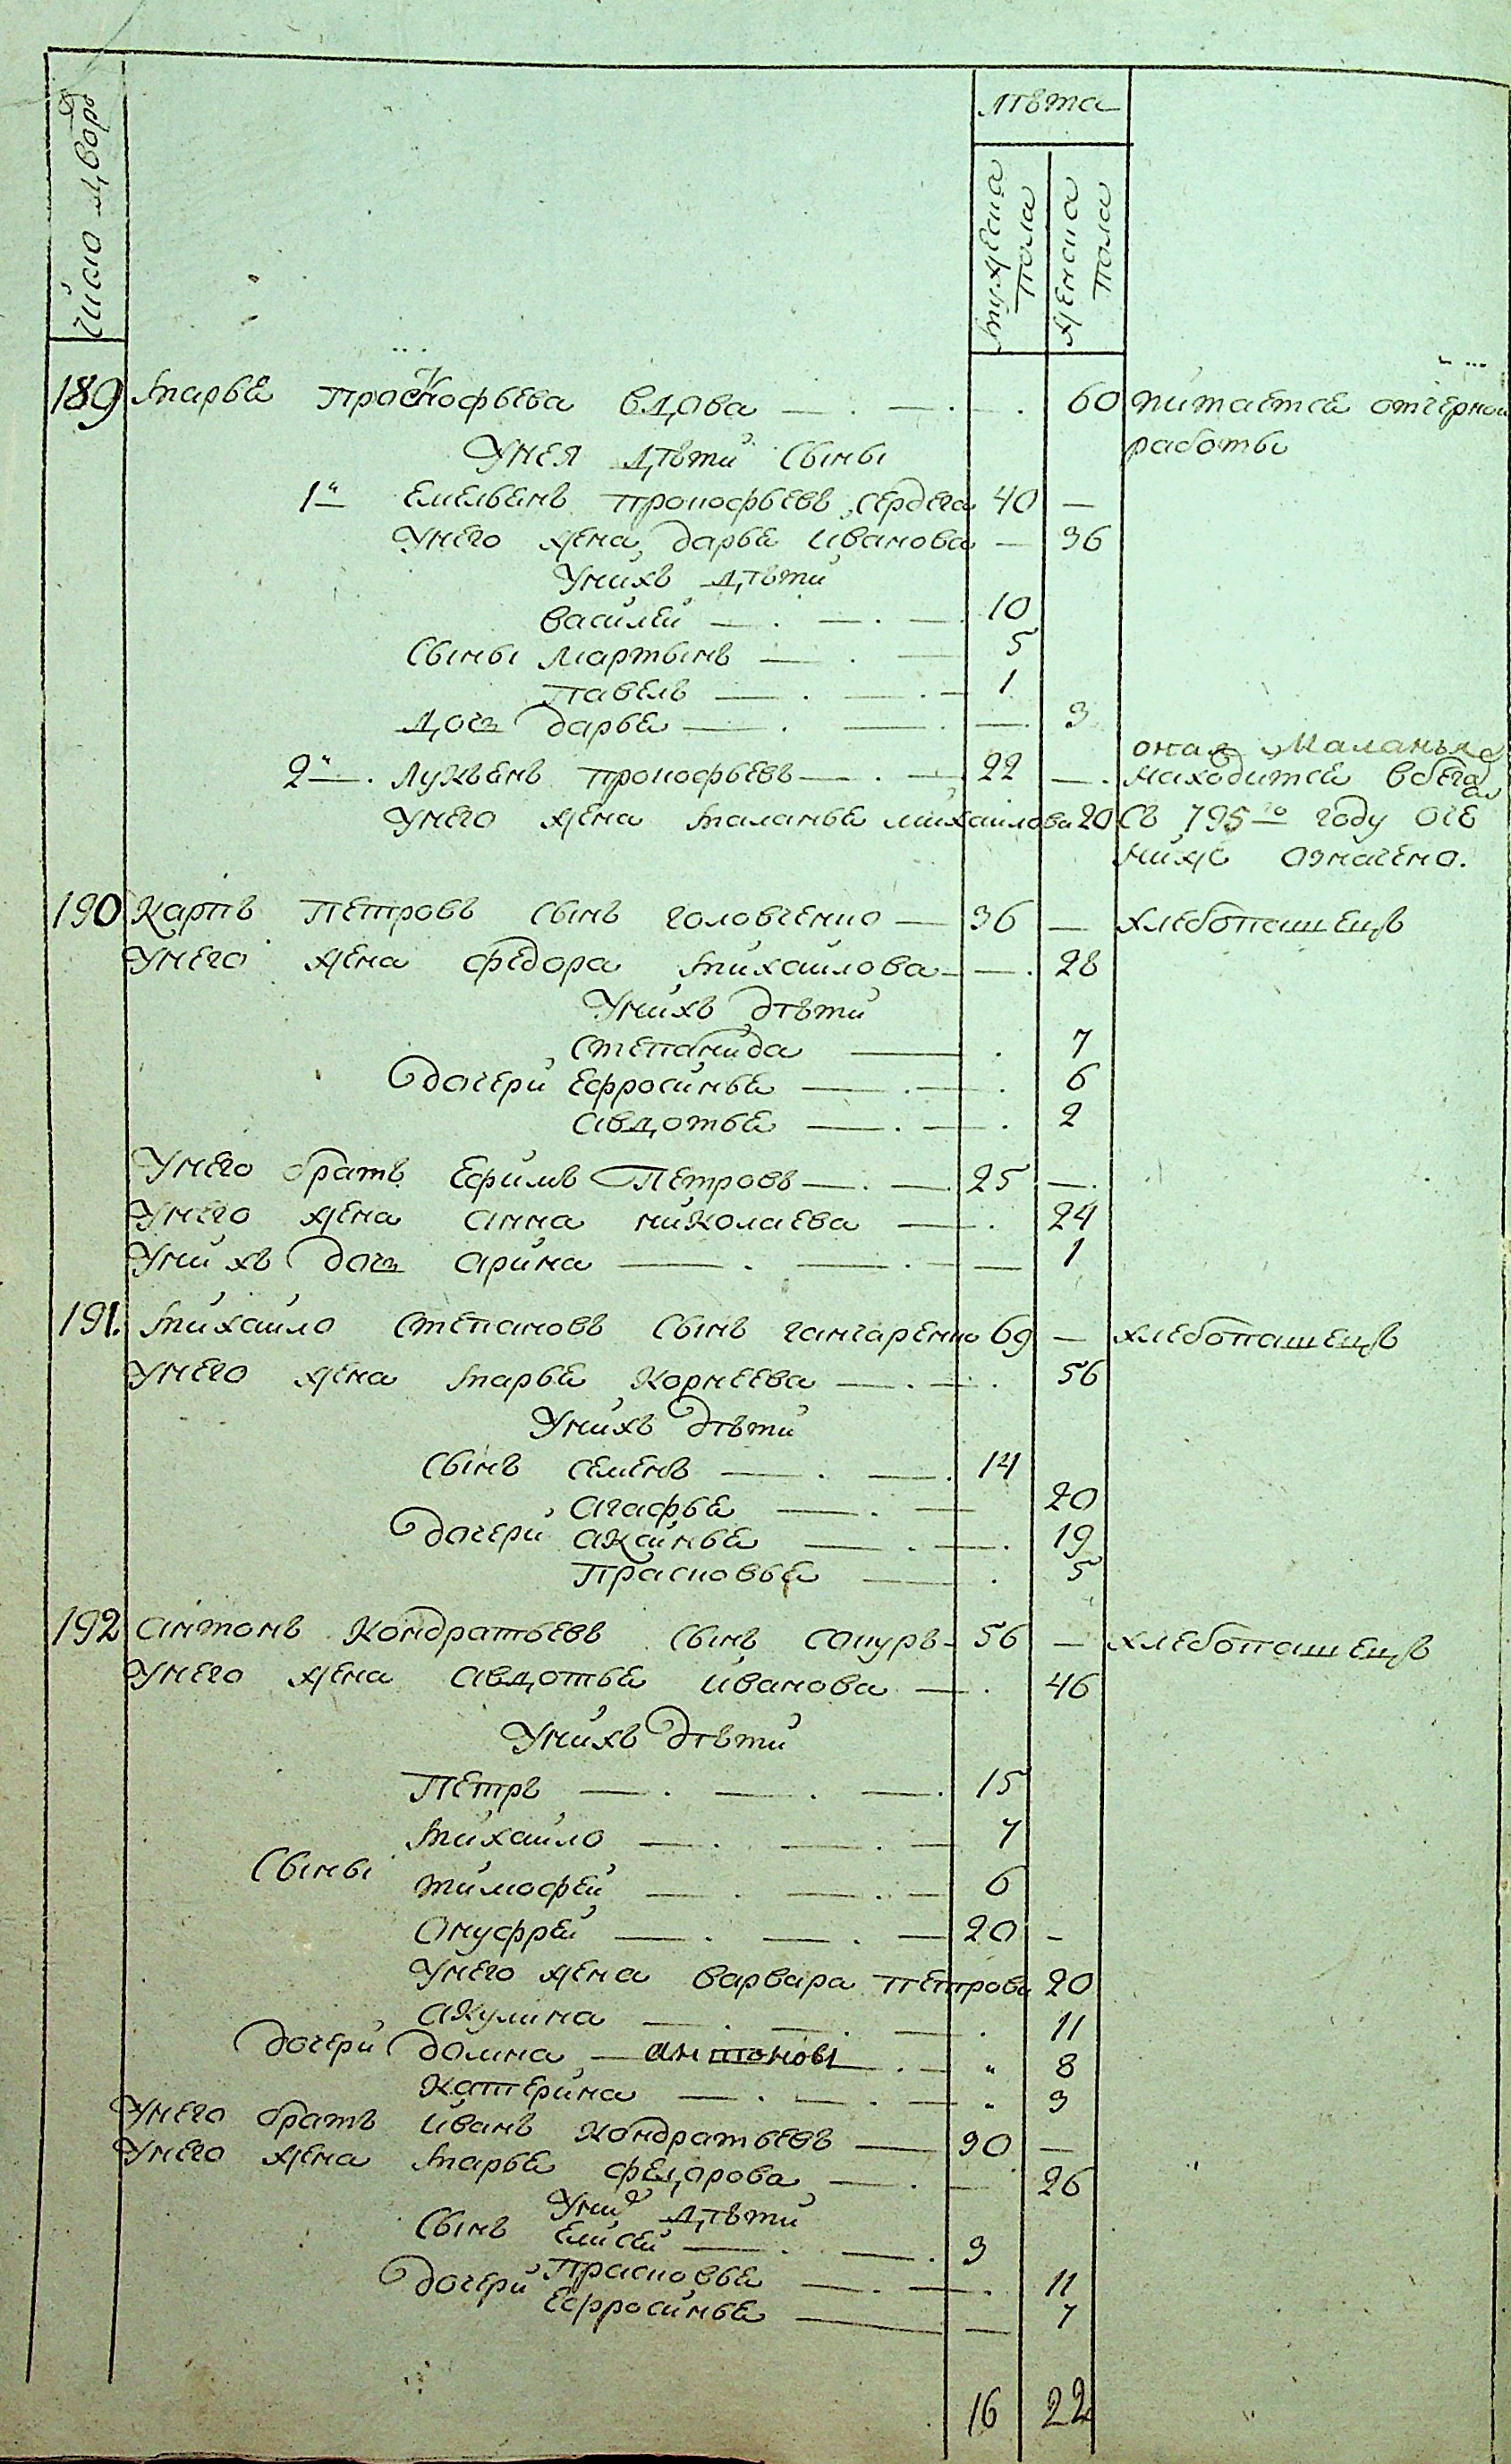 число дворъ
лѣта
мужеска пола
женска пола
189 марье прокофьева вдова — . — . — . 60 питаетсе отчерной
работы
Унея дѣти сыны
1й емельенъ прокофьевъ сердега 40 —
Унего жена дарье иванова — 36
Унихъ дѣти
василей — . — . — 10
сыны мартынъ — . — 5
павелъ — . — . — 1
дочь дарье — . — — 3
оная маланья
2й. лукьенъ прокофьевъ — . — 22 — . находитсе вбега
Унего жена маланье михаилова 20 съ 795го году оче
ниже означено.
190 карпъ петровъ сынъ головченко — 36 — хлебопашецъ
Унего жена федора михаилова — — . 28
Унихъ дѣти
степанида — . 7
дочери ефросинье — . — . 6
авдотье — . — . 2
Унего братъ ефимъ петровъ — . — 25 — .
Унего жена анна николаева — . 24
Унихъ дочь арина — . — . — — 1
191. михаило степановъ сынъ ганчаренко 69 — хлебопашецъ
Унего жена марье корнеева — . — . 56
Унихъ дѣти
сынъ семенъ — . — . 14
агафье — . — 20
дочери аксинье — . — . 19
прасковье — . 5
192 антонъ кондратьевъ сынъ сокуръ — 56 — хлебопашецъ
Унего жена авдотье иванова — . 46
Унихъ дѣти
петръ — . — . — . 15
михаило — . — . — 7
сыны
тимофей — . — . — 6
онуфрей — . — . — 20 —
Унего жена варвара петрова 20
акулина — . — . — . 11
дочери домна — антоновы — . — " 8
катерина — . — . — " 3
Унего братъ иванъ кондратьевъ — 30 —
Унего жена марье федорова — . — 26
Унихъ дѣти
сынъ елисей — . — . 3
дочери прасковье — . — . 11
ефросинье — — 7
16 22